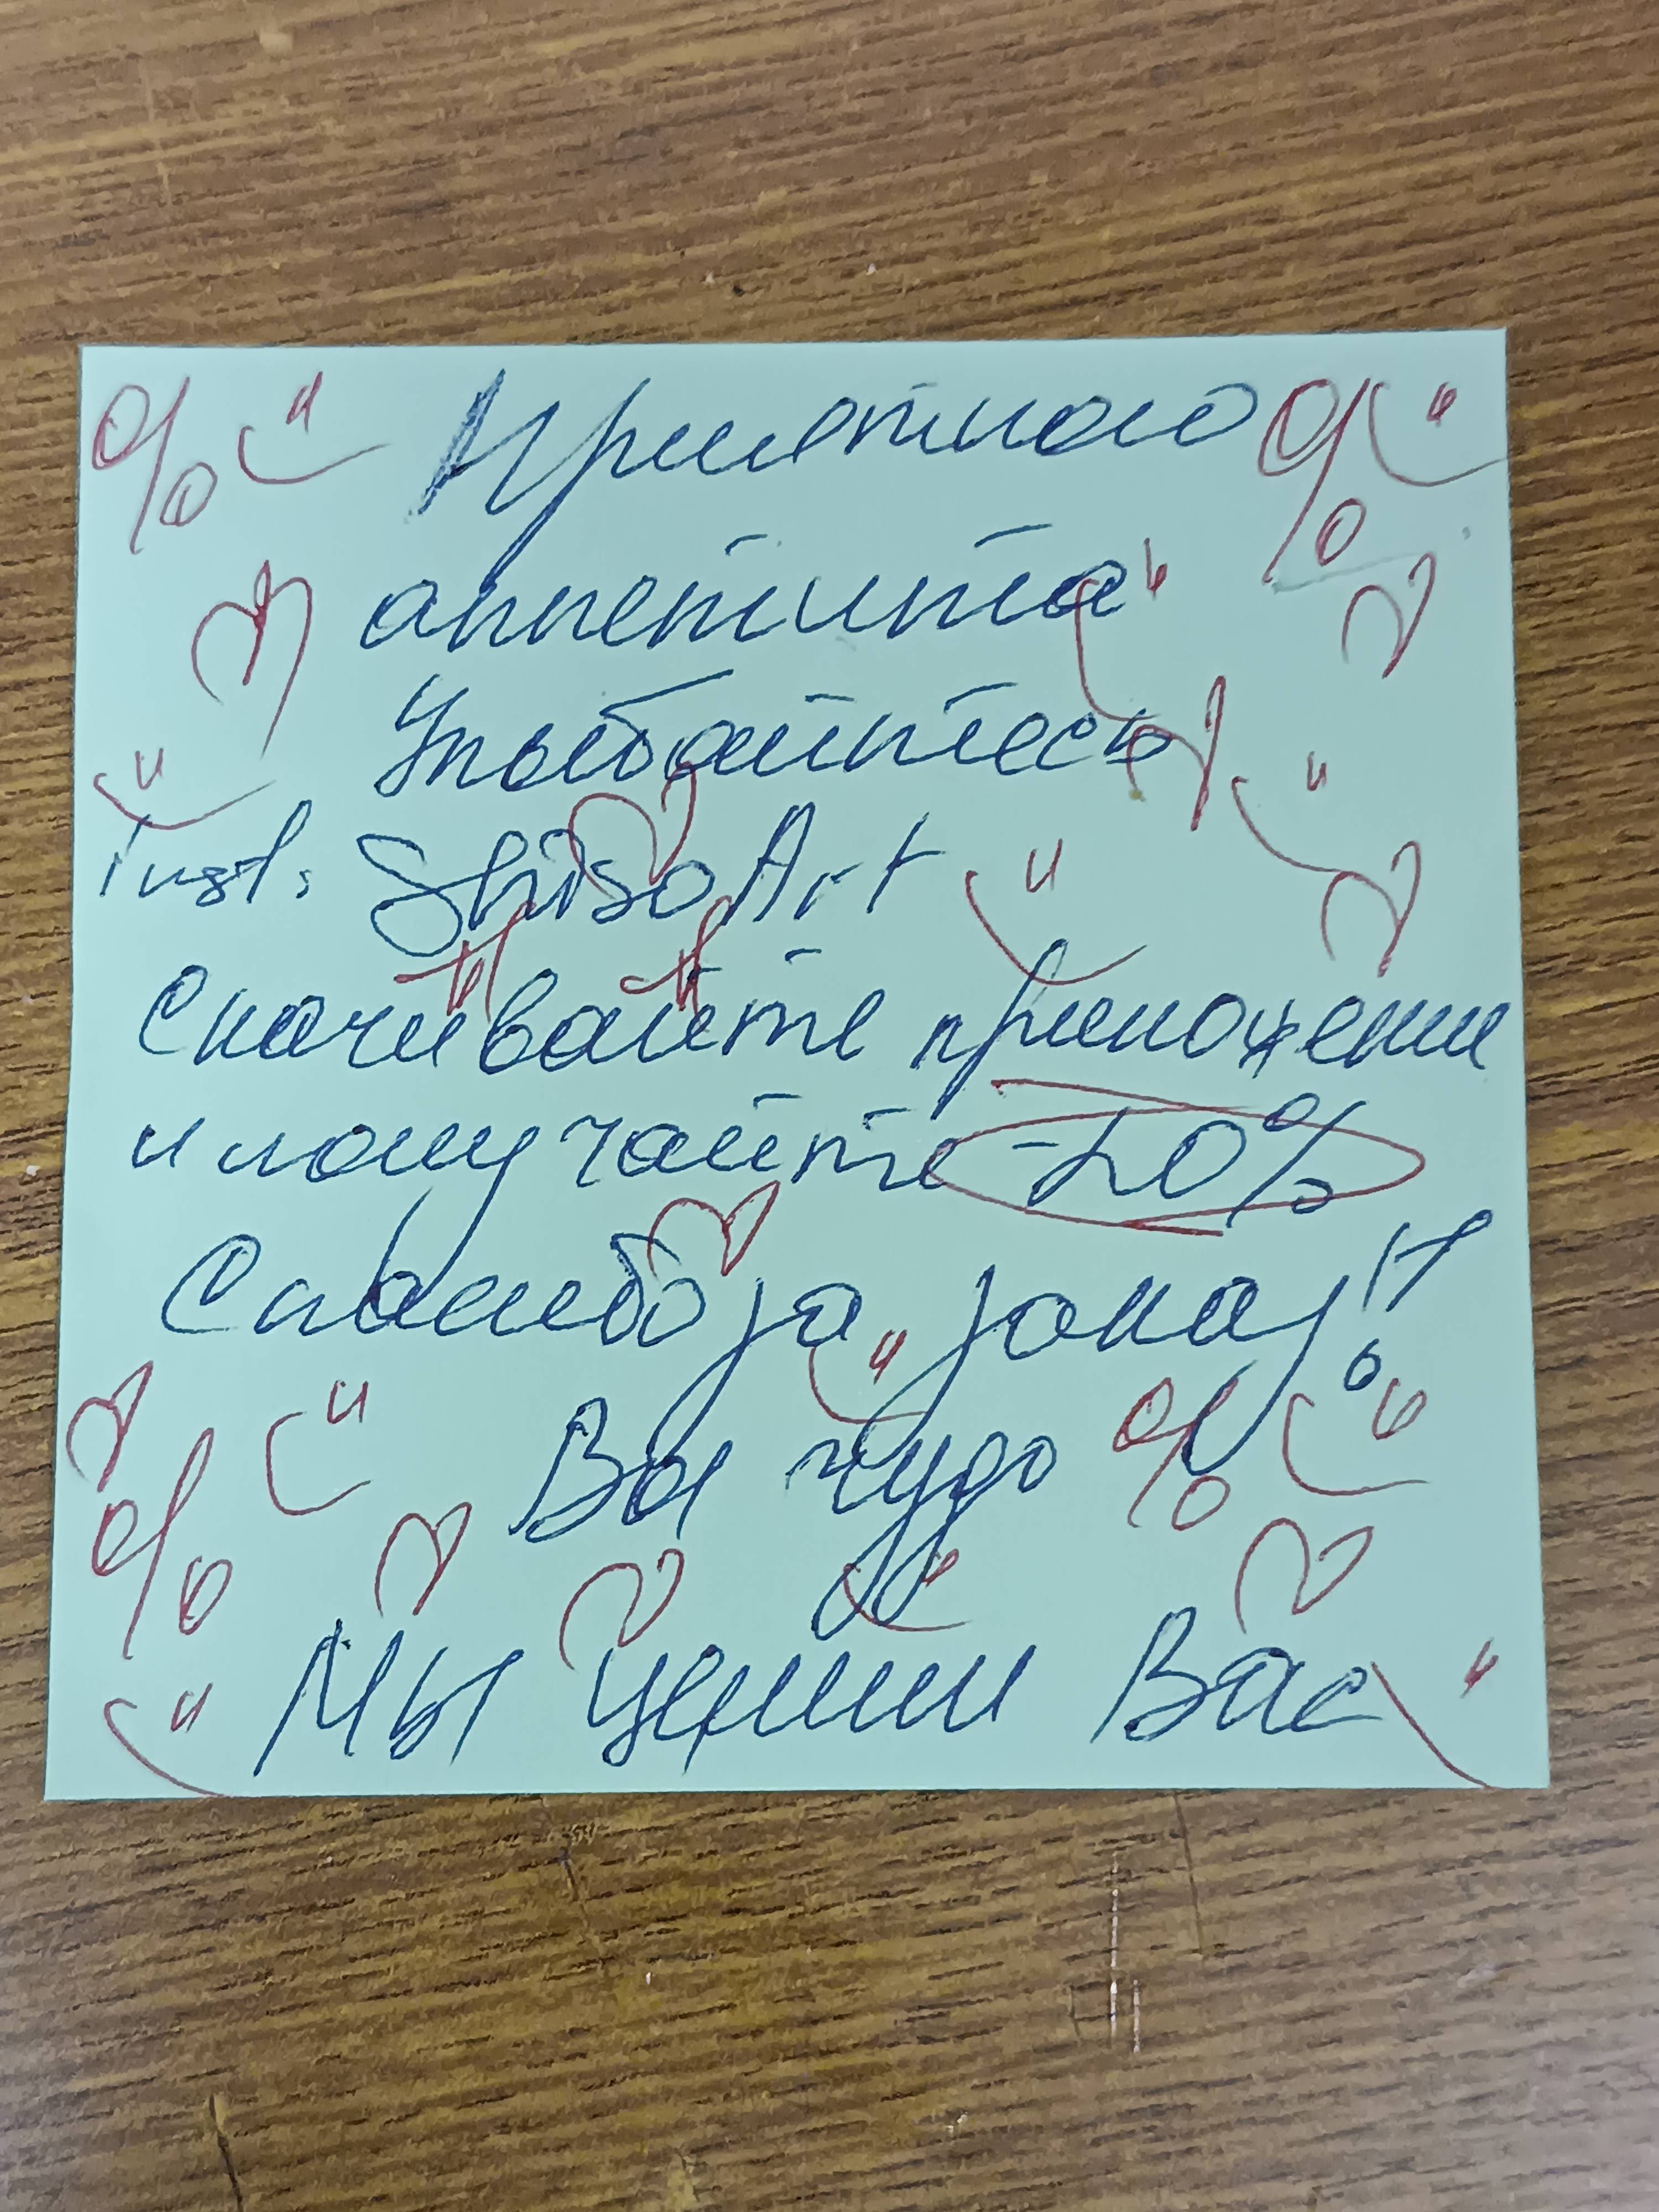 Приятного
аппетита
Улыбайтесь
inst. ShisoArt
Скачивайте приложени
и получайте -20%
Спасибо за заказ!!
Вы чудо
Мы ценим Вас